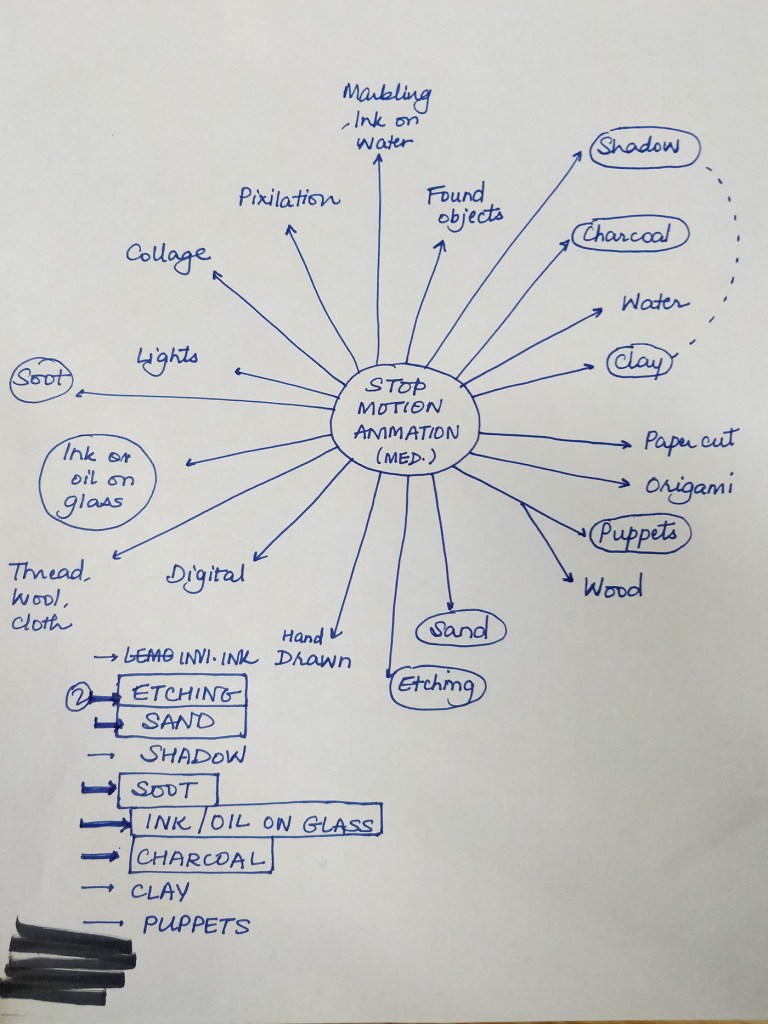 Marbling
Ink on
Water
Shadow
Pixilation
Found
objects
Charcoal
Collage
Water
Lights
Clay
Soot
STOP
MOTION
ANIMATION
(MED.)
Paper cut
Ink or
oil on
glass
Origami
Puppets
Thread,
Wool,
Cloth
Digital
Wood
Sand
Hand
Drawn
Etching
→ LEMO INVI. INK
② → ETCHING
→ SAND
→ SHADOW
→ SOOT
→ INK / OIL ON GLASS
→ CHARCOAL
→ CLAY
→ PUPPETS